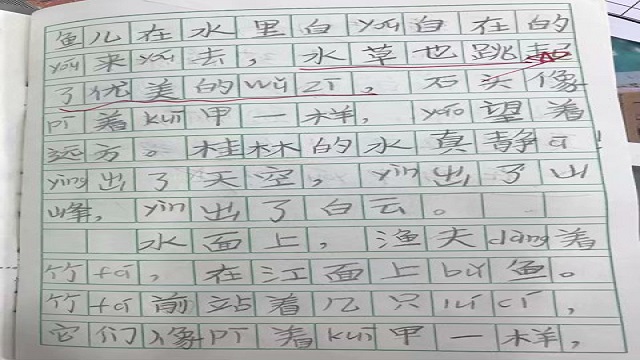 鱼儿在水里自yóu自在的
yóu来yóu去，水草也跳起
了优美的wǔ zī，石头像
pī着kuī甲一样，yáo望着
远方。桂林的水真静ā！
yìng出了天空，yìn出了山
峰，yìn出了白云。
水面上，渔夫dàng着
竹fá，在江面上bǔ鱼。
竹fá前站着几只lú cí，
它们像pī着kuī甲一样，